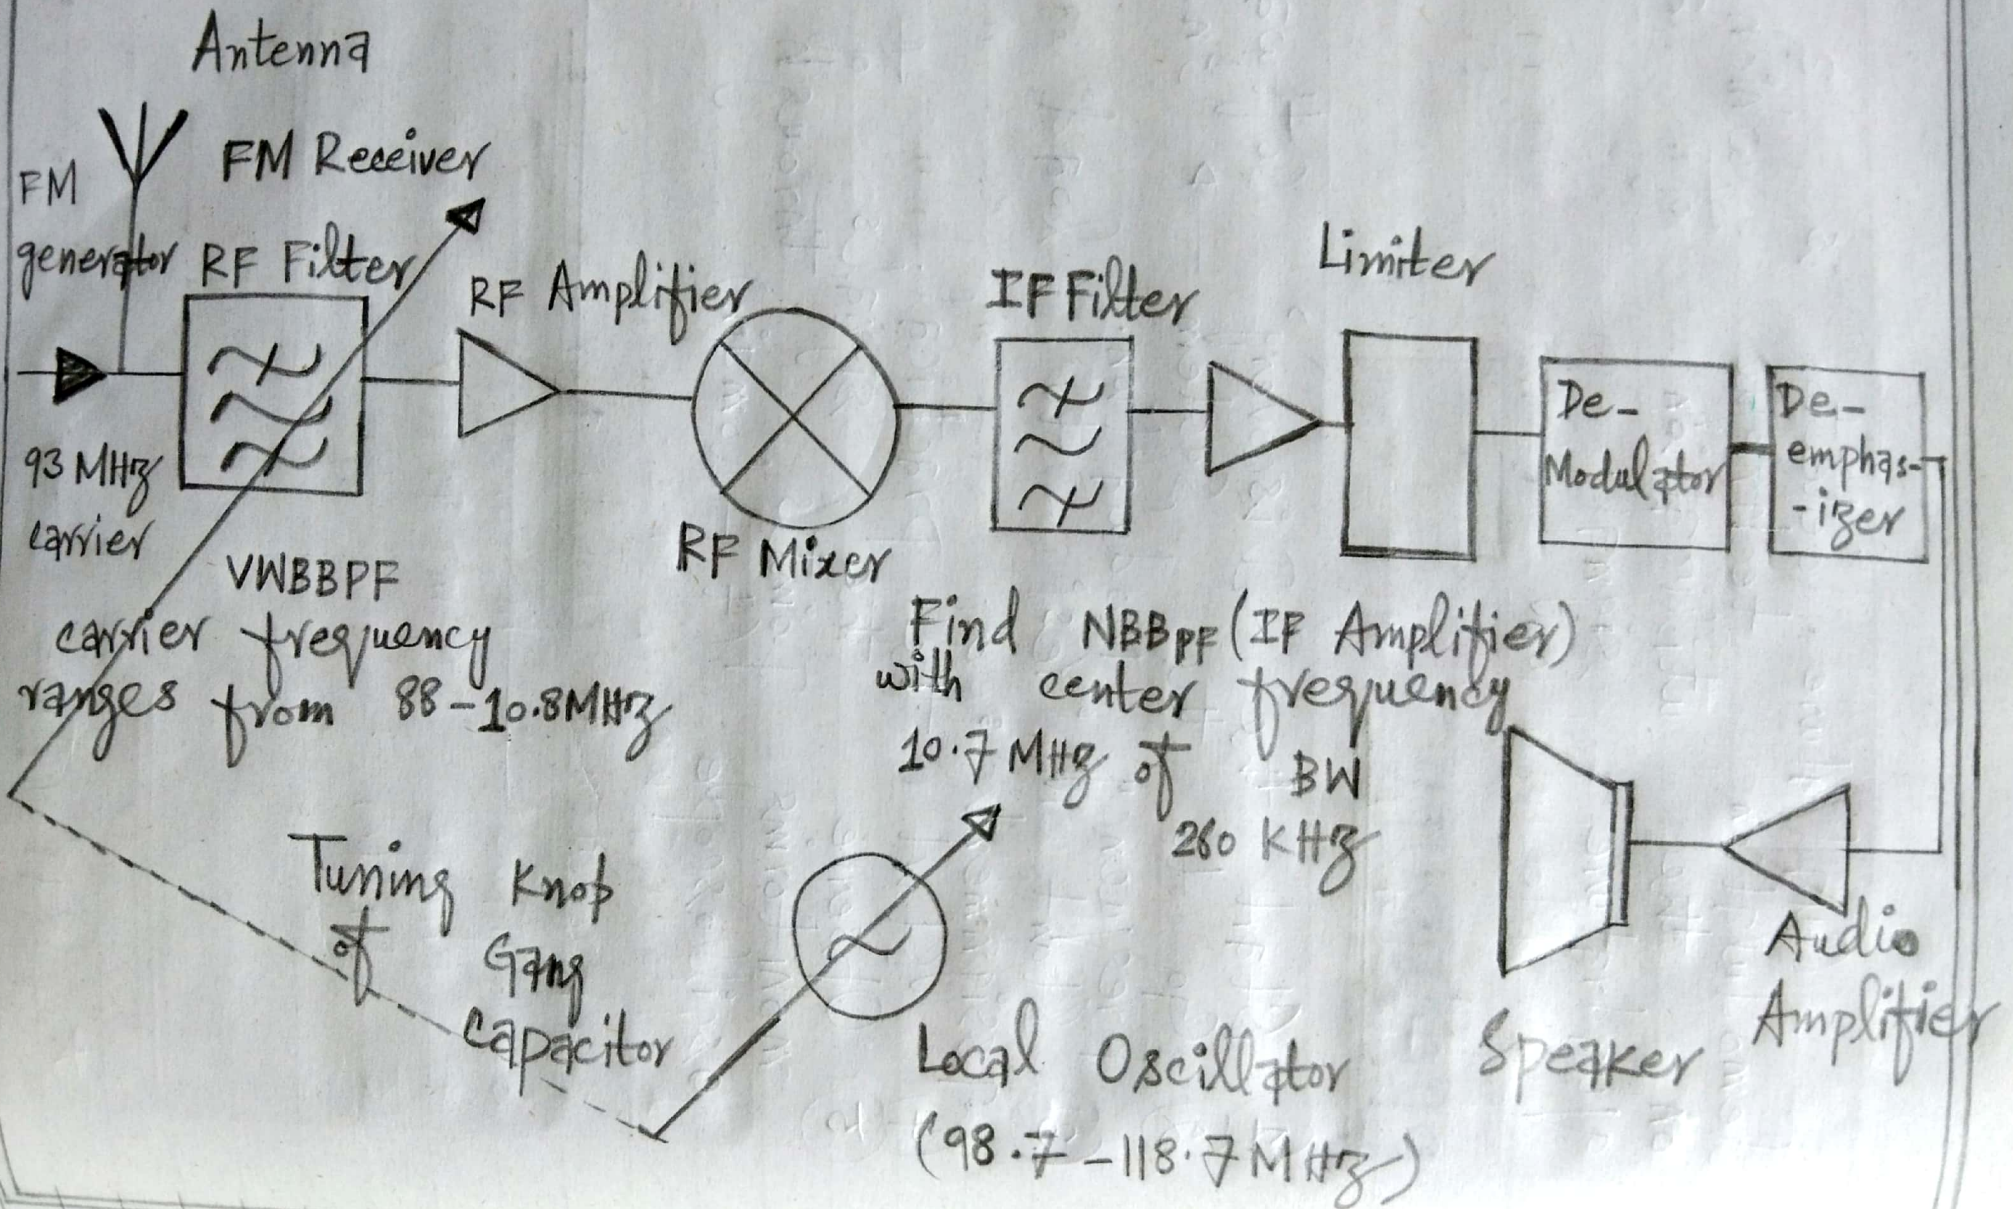 Antenna
FM Receiver
FM
generator
RF Filter
RF Amplifier
IF Filter
Limiter
De-
Modulator
De-
emphas-
-izer
93 MHz
carrier
RF Mixer
VWBBPF
carrier frequency
ranges from 88-10.8MHz
Find NBBPF (IF Amplifier)
with center frequency
10.7 MHz of BW
260 KHz
Tuning Knob
of Gang
capacitor
Local Oscillator
(98.7-118.7 MHz)
Speaker
Audio
Amplifier